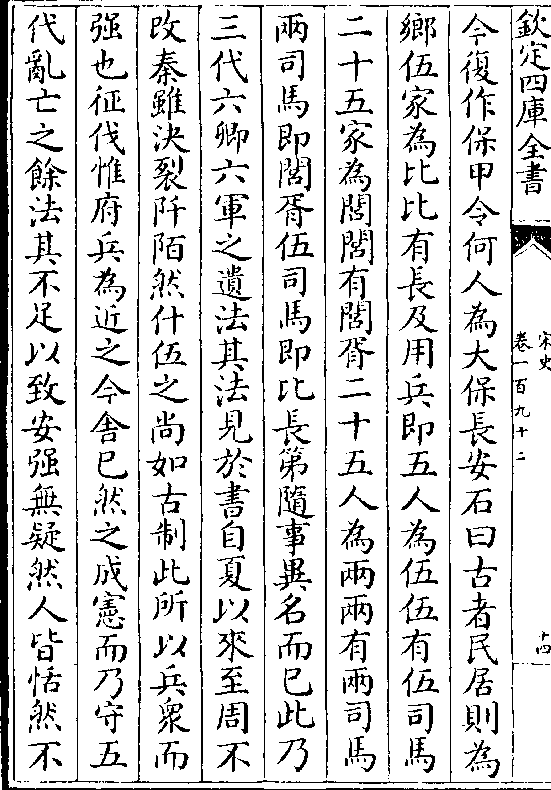 欽定四庫全書
宋史
卷一百九十二
十四
今復作保甲令何人為大保長安石曰古者民居則為
鄉伍家為比比有長及用兵即五人為伍伍有伍司馬
二十五家為閭閭有閭胥二十五人為兩兩有兩司馬
兩司馬即閭胥伍司馬即比長第隨事異名而已此乃
三代六卿六軍之遺法其法見於書自夏以來至周不
改秦雖決裂阡陌然什伍之尚如古制此所以兵衆而
强也征伐惟府兵為近之今舎已然之成憲而乃守五
代亂亡之餘法其不足以致安强無疑然人皆恬然不